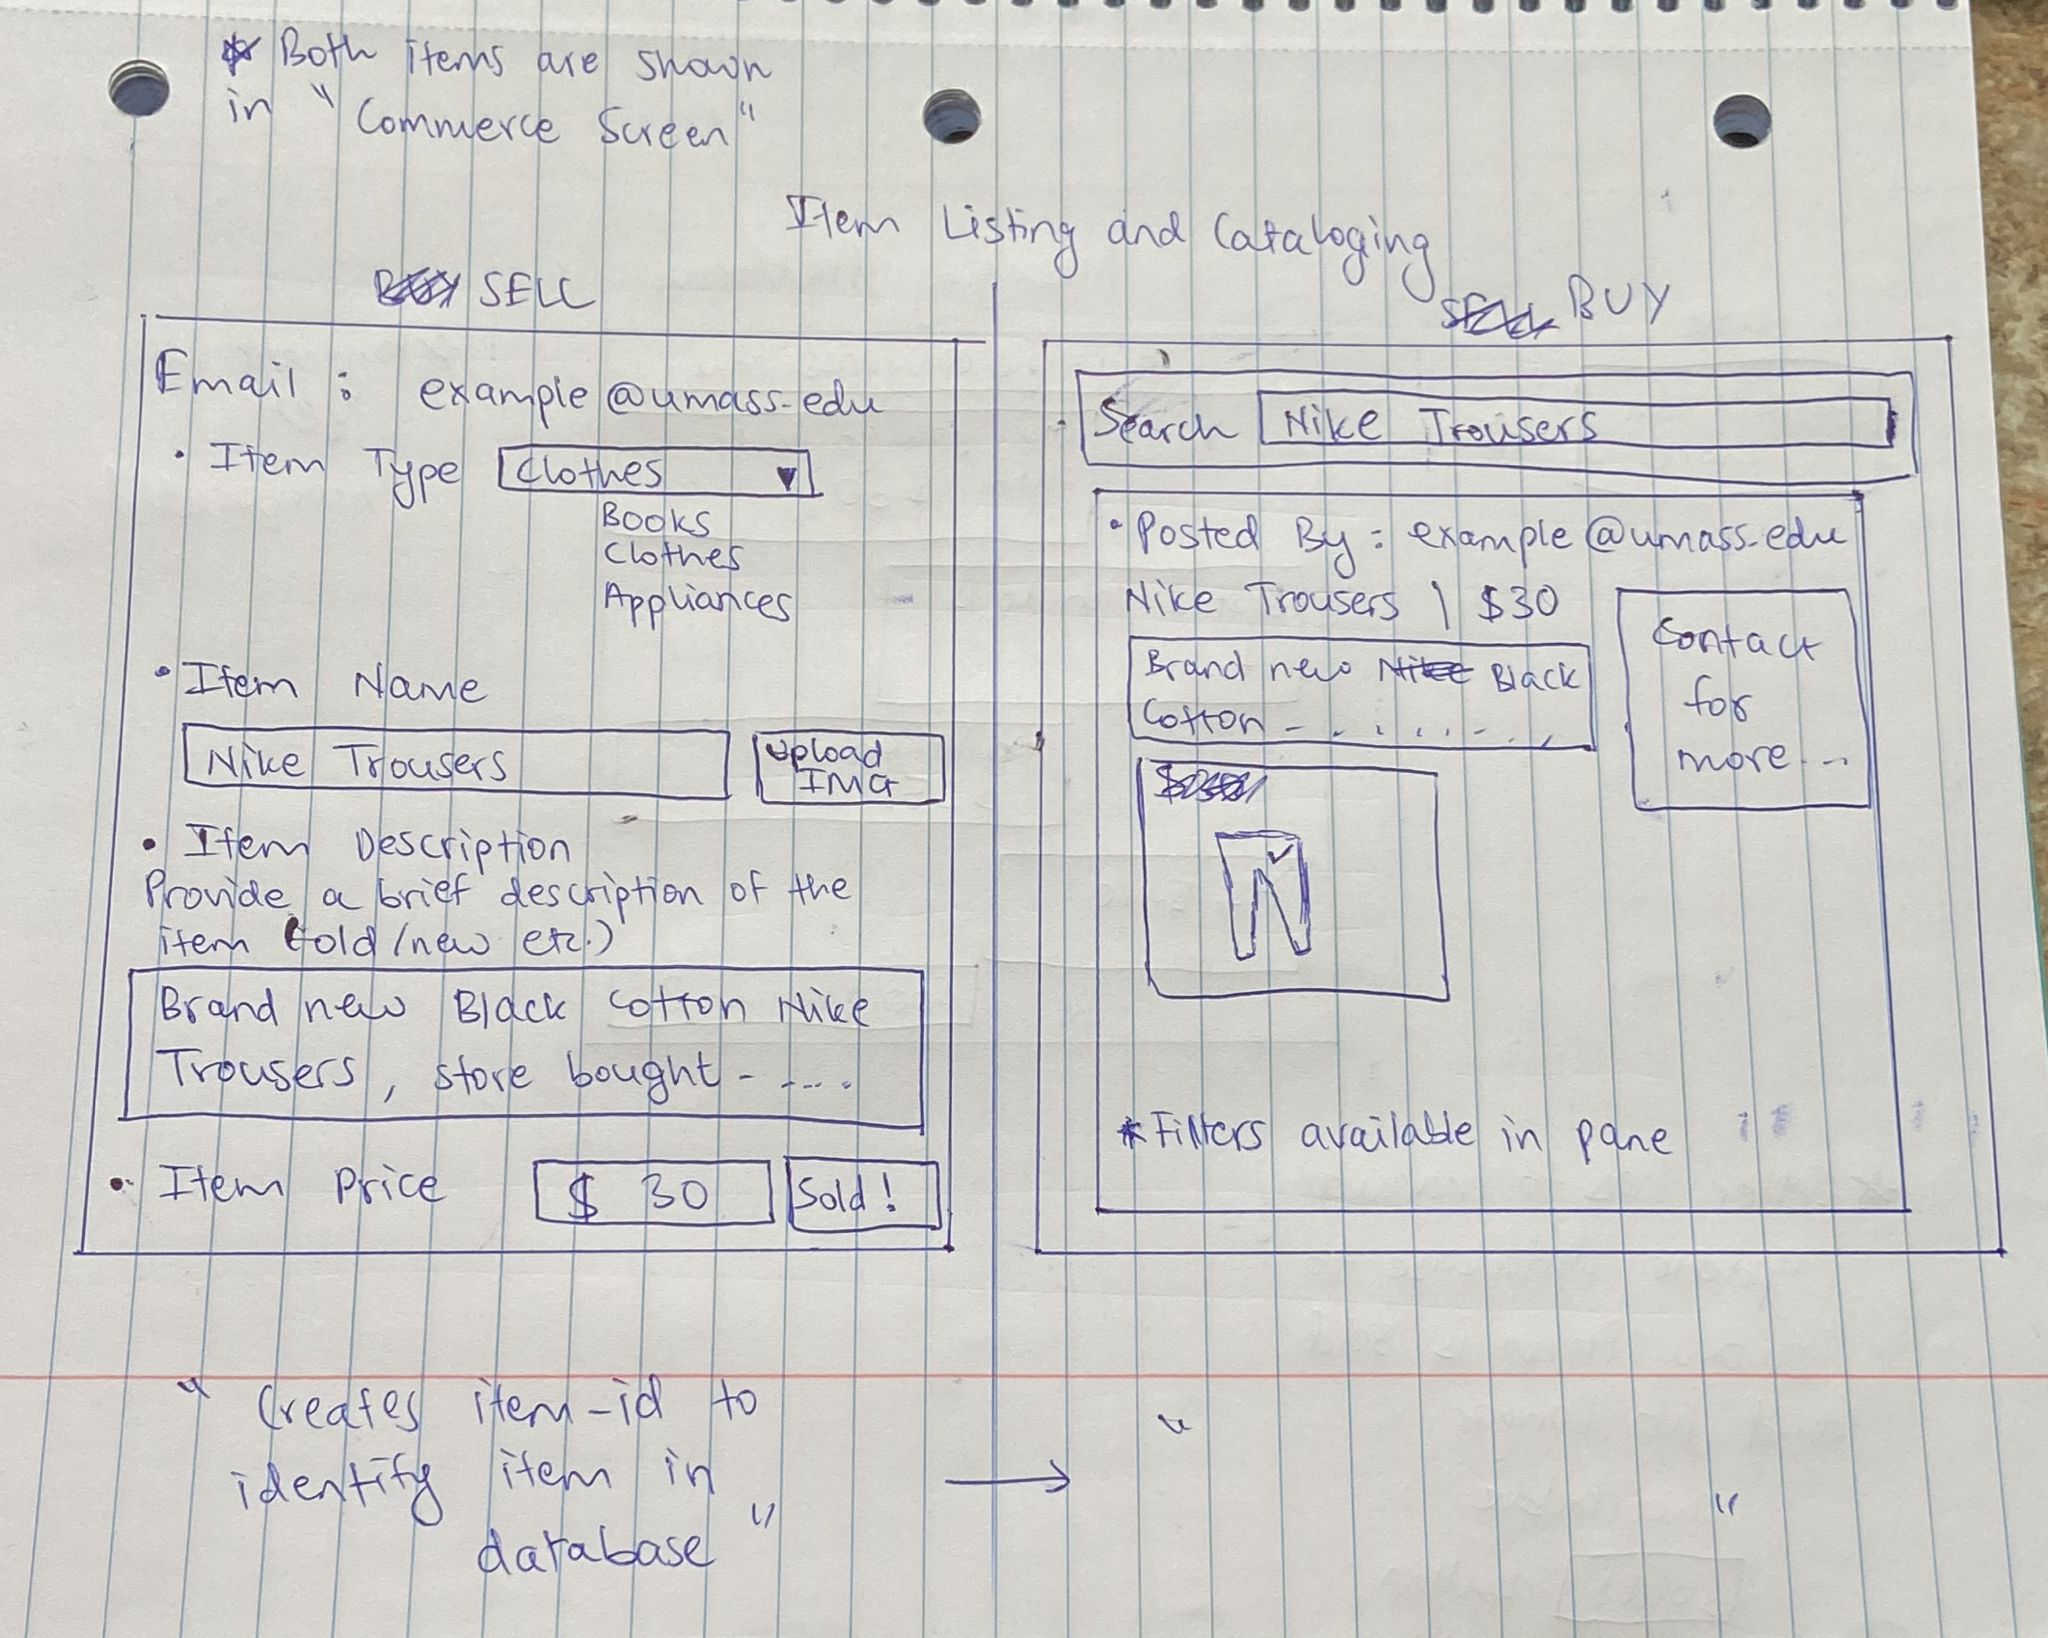 * Both items are shown
in " Commerce Screen "
Item Listing and Cataloging
SELL
Email : example@umass.edu
• Item Type Clothes ▼
Books
Clothes
Appliances
• Item Name
Nike Trousers Upload
IMG
• Item Description
Provide a brief description of the
item (old/new etc.)
Brand new Black cotton Nike
Trousers, store bought - ....
• Item Price $ 30 Sold!
" Creates item-id to
identify item in
database "
BUY
Search Nike Trousers
• Posted By: example@umass.edu
Nike Trousers | $30
Brand new Nike Black
Cotton - . . . . . - . ,
Contact
for
more...
* Filters available in pane
→ "
"